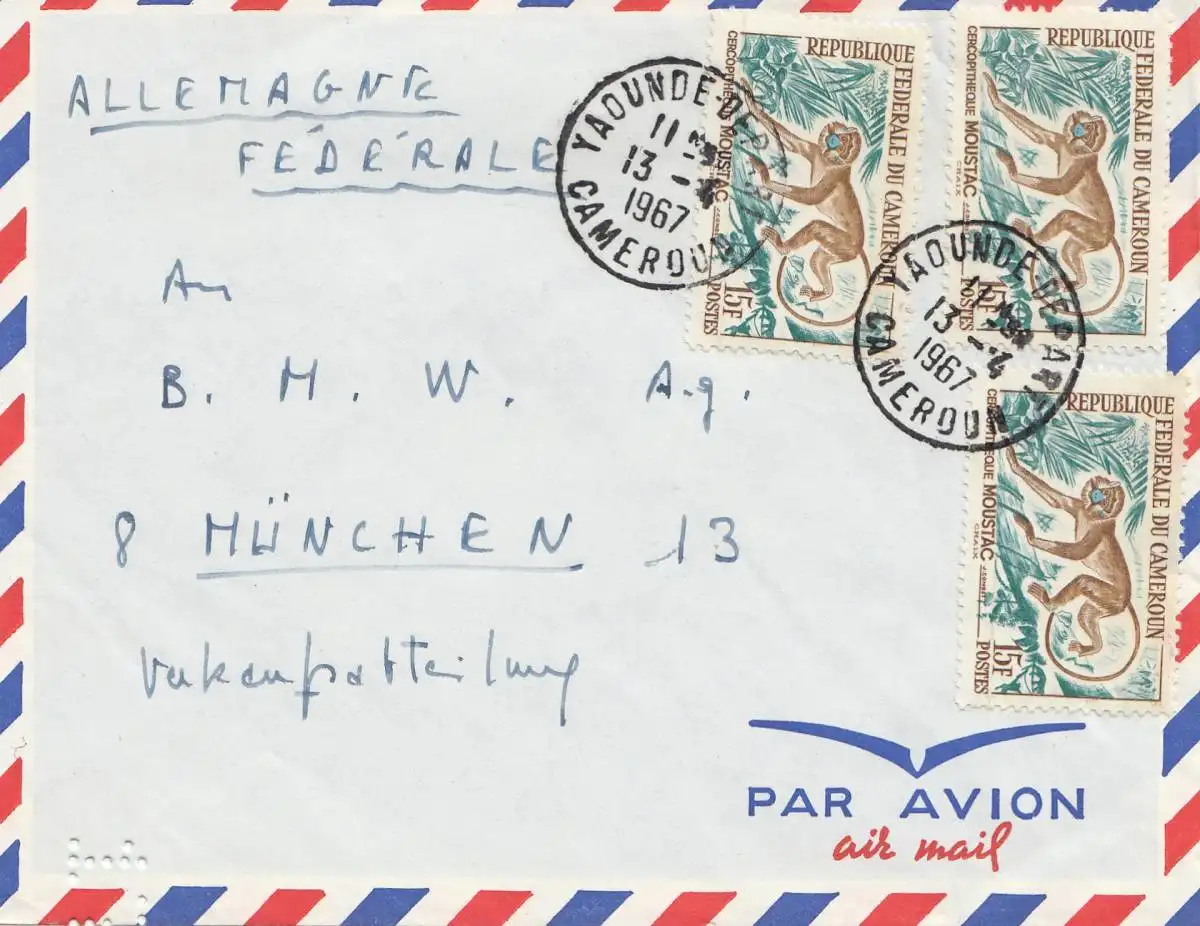 ALLEMAGNE
FÉDÉRALE
An
B. M. W. A.g.
8 MÜNCHEN 13
Verkaufsabteilung
REPUBLIQUE FEDERALE DU CAMEROUN
CERCOPITHEQUE MOUSTAC
15F
POSTES
REPUBLIQUE FEDERALE DU CAMEROUN
CERCOPITHEQUE MOUSTAC
CRAIX
15F
POSTES
REPUBLIQUE FEDERALE DU CAMEROUN
CERCOPITHEQUE MOUSTAC
CRAIX
J.COMBET
15F
POSTES
YAOUNDE-DEPART
13 -4
1967
CAMEROUN
YAOUNDE-DEPART
13 -4
1967
CAMEROUN
PAR AVION
air mail